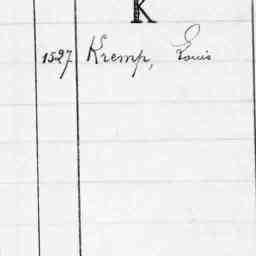 K
1527 Kremp, Louis